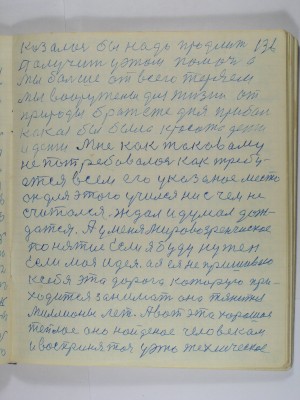 казалось бы надо продлить 136
Получить у этом помочь а
мы больше от всего теряем
мы вооружены для жизни от
природы братske дня прибав
какая бы была красота дети
и дети Мне как таковому
не потребовалось как требу-
ется всем его указаное место
он для этого учился ни с чем не
считался. Ждал и думал дож-
дается. А у меня Мировозренческое
понятие Если я буду нужен
Если моя идея. а я ее не пришиваю
к себе эта дорога которую при-
ходится занимать она тянется
миллионы лет. А вот эта хорошая
теплое оно найденое человекам
и воспринятоя уэто же хлическое